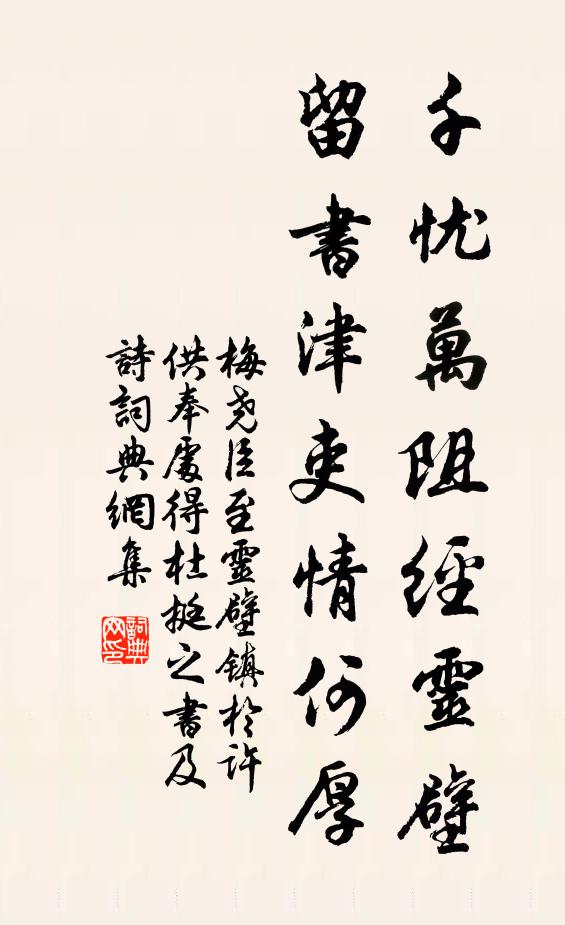 千忧萬阻經靈壁
留書津吏情何厚
梅尧臣至靈壁镇於许
供奉處得杜挺之書及
詩詞典網集
詞典
网印